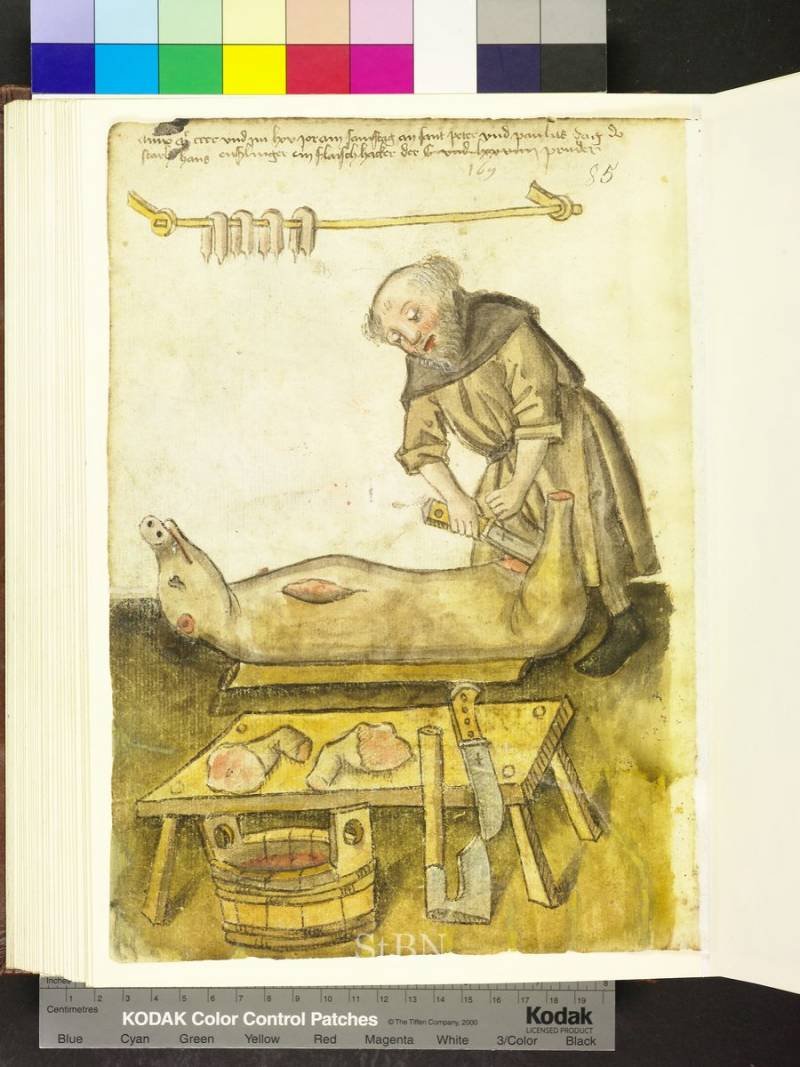 cccc und im lxv jor am samstag an sant peter und paulus dag do
starb hans enßlinger ein flaischhacker der C und pruder
85
StBN
Inches 8
1 2 3 4 5 6 7 8 9 10 11 12 13 14 15 16 17 18 19
Centimetres
KODAK Color Control Patches © The Tiffen Company, 2000 Kodak
LICENSED PRODUCT
Blue Cyan Green Yellow Red Magenta White 3/Color Black